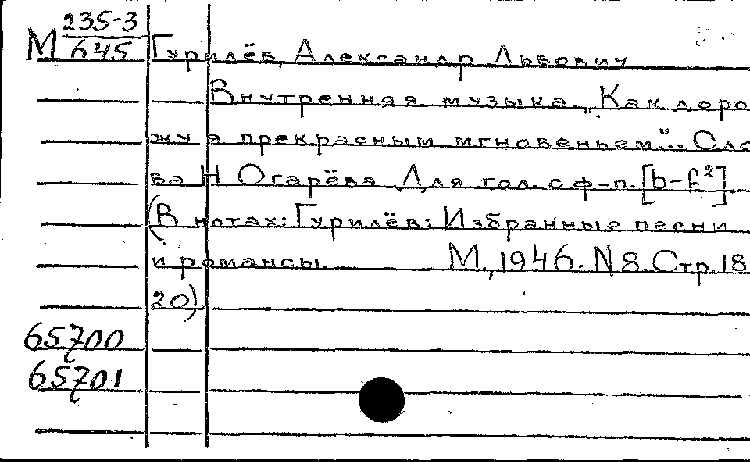 М 235-3/645 Гурилёв, Александр Львович
Внутренняя музыка. „Как доро
жу я прекрасным мгновеньем"... Сло
ва Н Огарёва Для гол. с ф-п. [b-f²]
(В нотах: Гурилёв: Избранные песни
и романсы. М., 1946. N 8. Стр. 18
20)
65700
65701